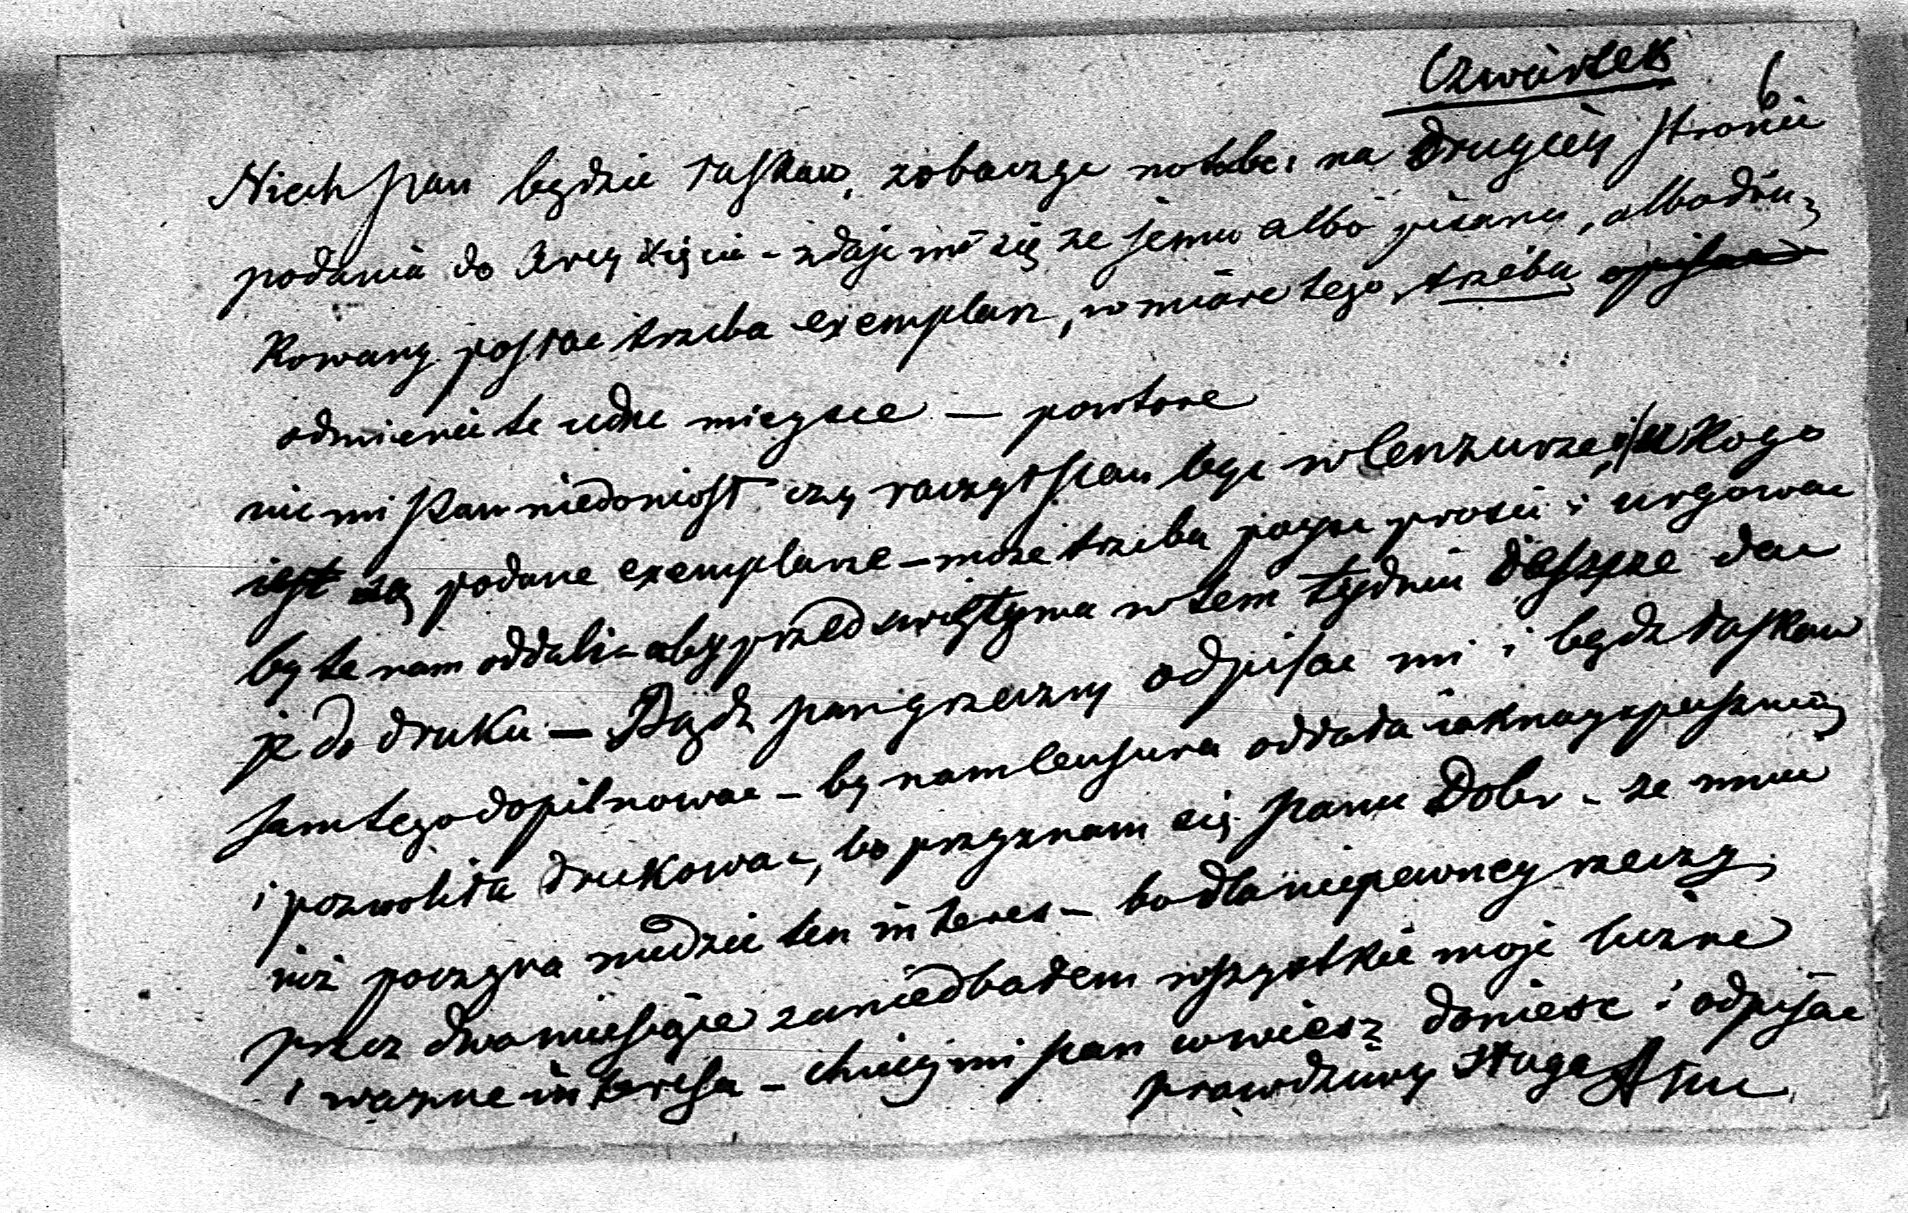 Czwartek
6
Niech Pan będzie łaskaw, zobaczyć na drugiey stronie
podania do Arcyxięcia - zdaje mi się ze jemu albo pisany, albo dru-
kowany posłać trzeba exemplarz, w miarę tego, trzeba
odmienić te miejsce — powtore
nic mi Pan niedoniosł czy raczył Pan być w Cenzurze, i u kogo
są podane exemplarze - moze trzeba prosić i urgować
by te nam oddali - aby przed świętyma w tem tygdniu ieszcze dać
je do druku — Bądź Pan grzeczny odpisać mi i bądz łaskaw
sam tego dopilnować - by nam Censura oddała iaknayspieszniey
i pozwoliła drukować, bo przyznam się Panu Dobr - ze mnie
iuż poczyna nudzić ten interes - bo dla niepewney rzeczy
przez dwa miesiące zaniedbałem wszystkie moje liczne
i ważne interesa - chciey mi Pan donieść i odpisać
prawdziwy sługa